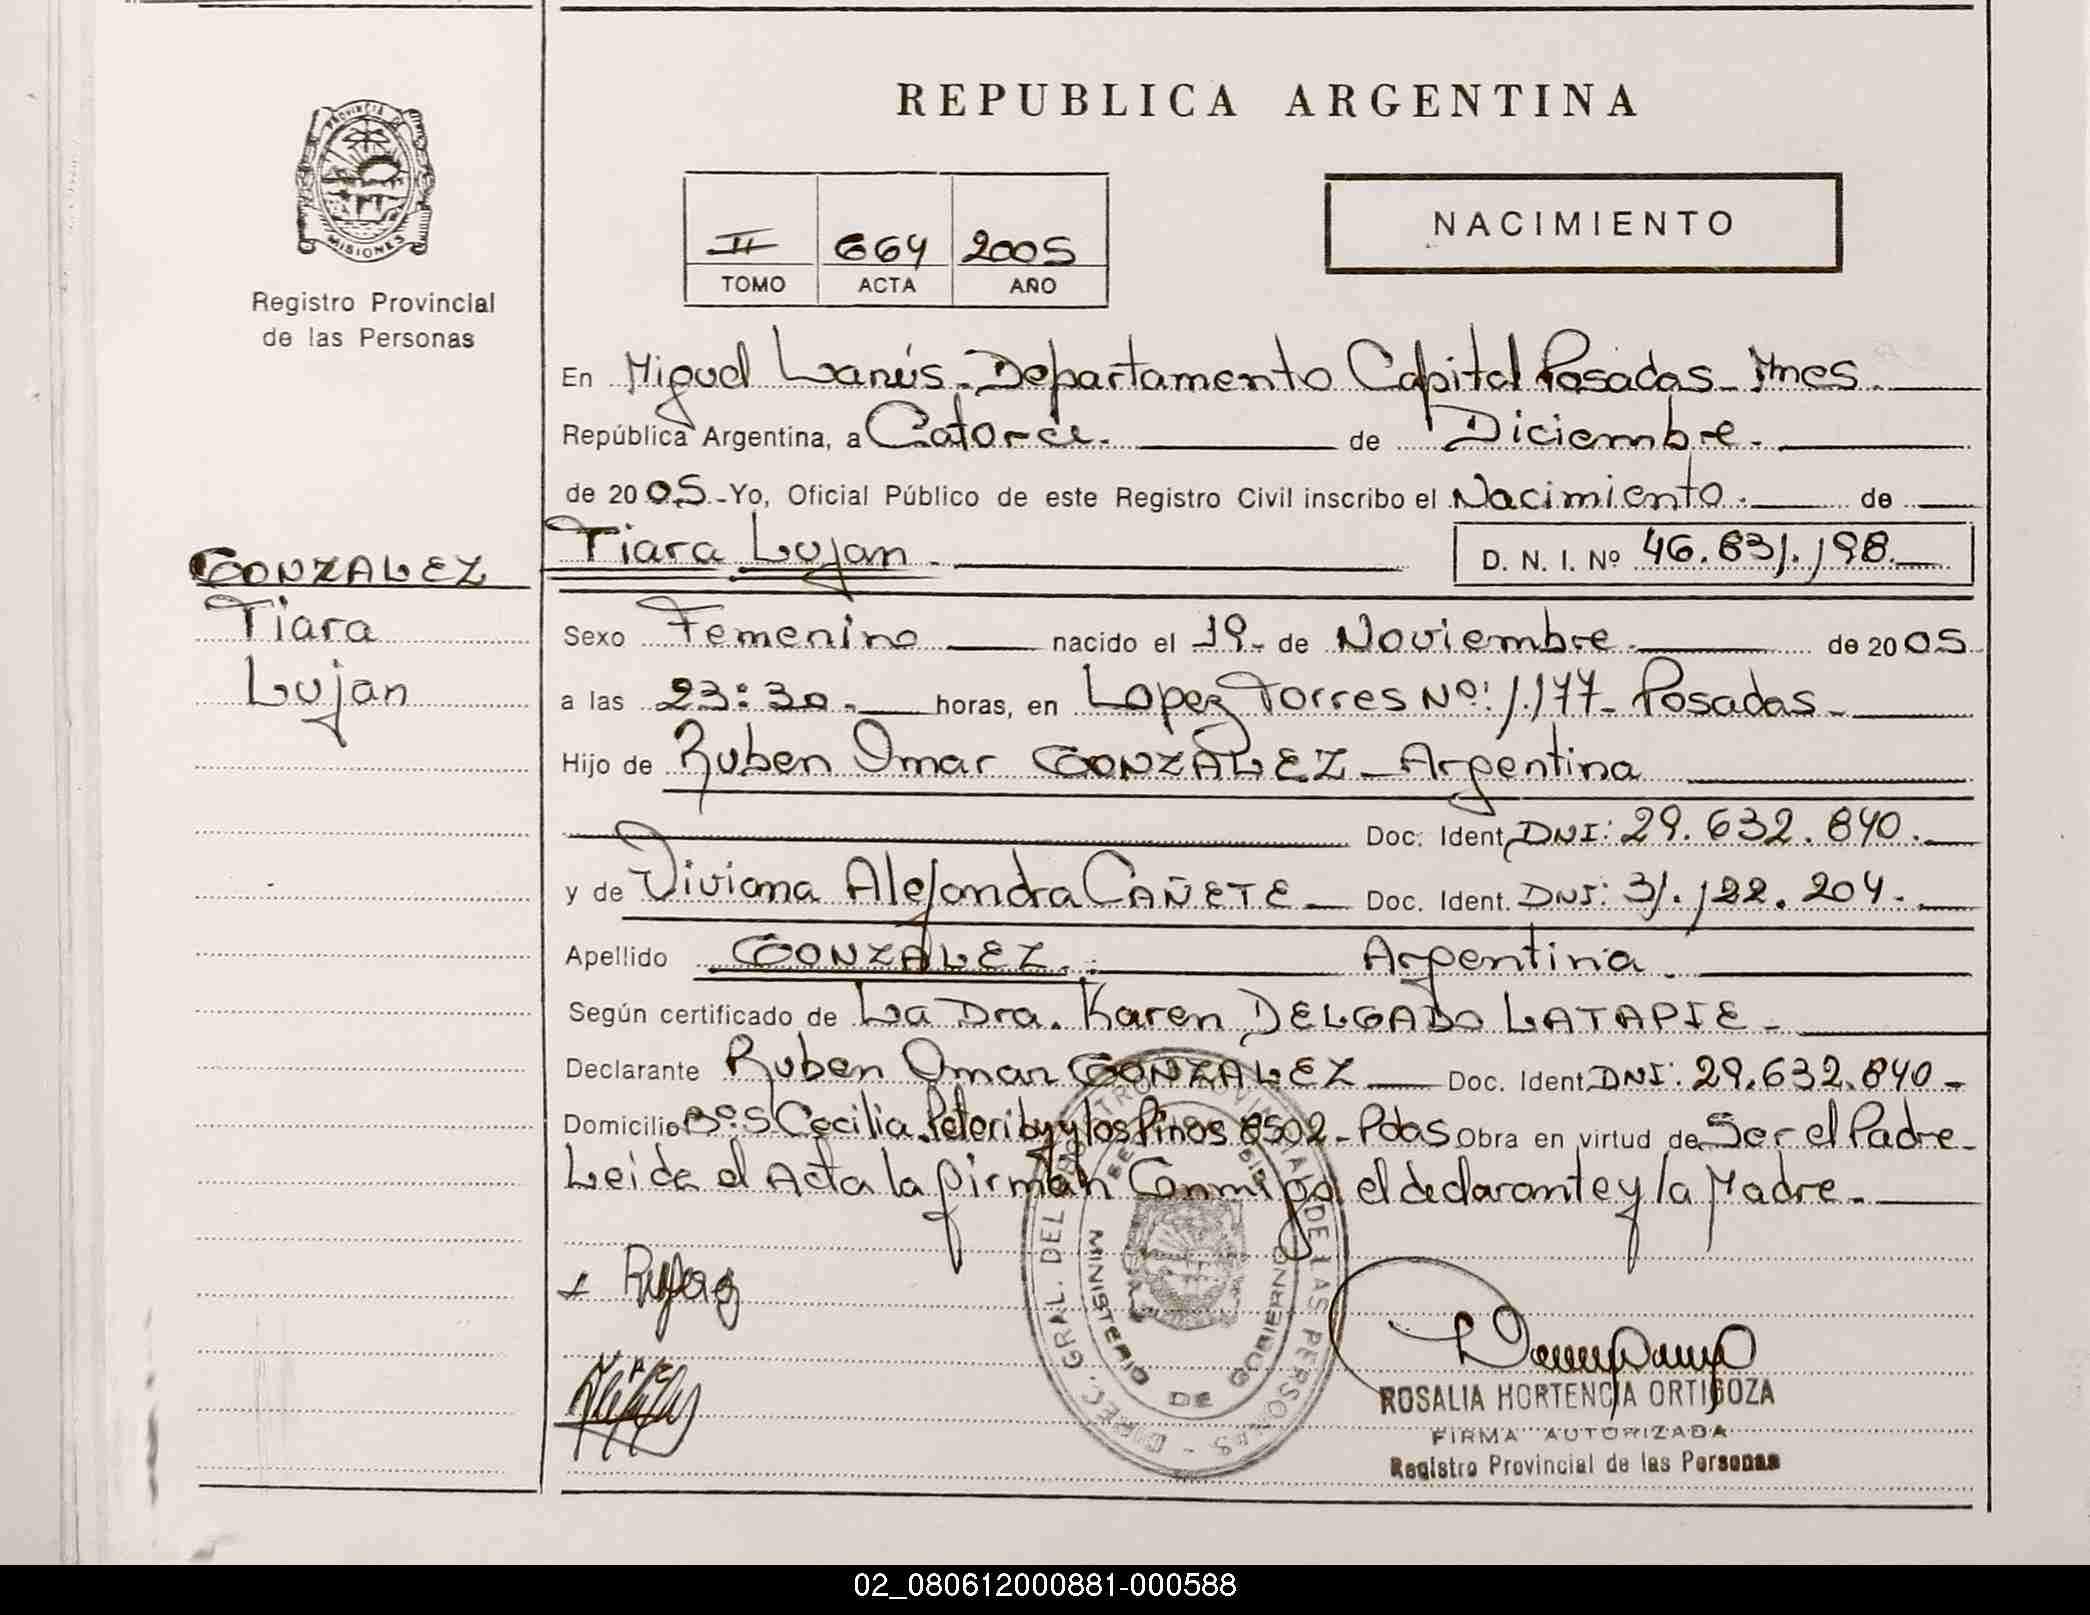 REPUBLICA ARGENTINA
PROVINCIA DE
MISIONES
Registro Provincial
de las Personas
II 664 2005
TOMO ACTA AÑO
NACIMIENTO
En Miguel Lanús - Departamento Capital Posadas - Mnes
República Argentina, a Catorce. de Diciembre.
de 2005 - Yo, Oficial Público de este Registro Civil inscribo el Nacimiento. de
Tiara Lujan. D. N. I. Nº 46.831.198.
GONZALEZ
Tiara
Lujan
Sexo Femenino nacido el 19. de Noviembre. de 2005
a las 23:30. horas, en Lopez Torres Nº: 1.177 - Posadas -
Hijo de Ruben Omar GONZALEZ - Argentina
Doc. Ident. DNI: 29.632.840.
y de Viviana Alejandra CAÑETE - Doc. Ident. DNI: 31.122.204.
Apellido GONZALEZ. Argentina.
Según certificado de La Dra. Karen DELGADO LATAPIE -
Declarante Ruben Omar GONZALEZ Doc. Ident. DNI: 29.632.840 -
Domicilio Bº S Cecilia. y los Pinos 8502 - Pdas Obra en virtud de Ser el Padre -
Leida el Acta la firman Conmigo el declarante y la Madre -
DIREC. GRAL. DEL REGISTRO PROVINCIAL DE LAS PERSONAS -
MINISTERIO DE GOBIERNO
ROSALIA HORTENCIA ORTIGOZA
FIRMA AUTORIZADA
Registro Provincial de las Personas
02_080612000881-000588